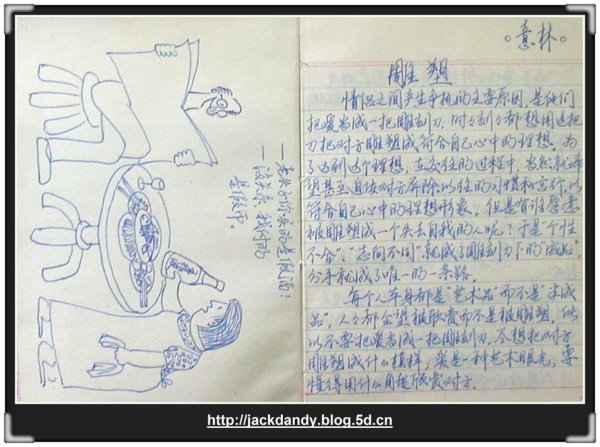 —老头子你买的是假酒!
—没关系,我付的
是假币。
。意林。
雕塑
情侣之间产生争执的主要原因,是他们
把爱当成一把雕刻刀,时々刻々都想用这把
刀把对方雕塑成符合自己心中的理想。为
了达到这个理想,在交往的过程中,当然就希
望甚至直接对方屏除以往的习惯和言行,以
符合自己心中的理想形象。但是有谁愿意
被雕塑成一个失去自我的人呢?于是"个性
不合"、"志向不同"就成了雕刻刀下的"成品",
分手就成了唯一的一条路。
每个人本身都是"艺术品"而不是"半成
品",人々都企望被欣赏而不是被雕塑。所
以不要把爱当成一把雕刻刀,尽想把对方
雕塑成什么模样,爱是一种艺术眼光,要
懂得用什么角度欣赏对方。
http://jackdandy.blog.5d.cn